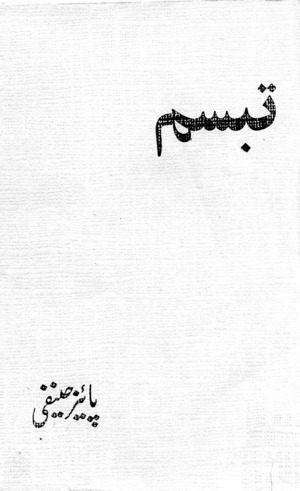 تبسم
پائنیر حنیفی